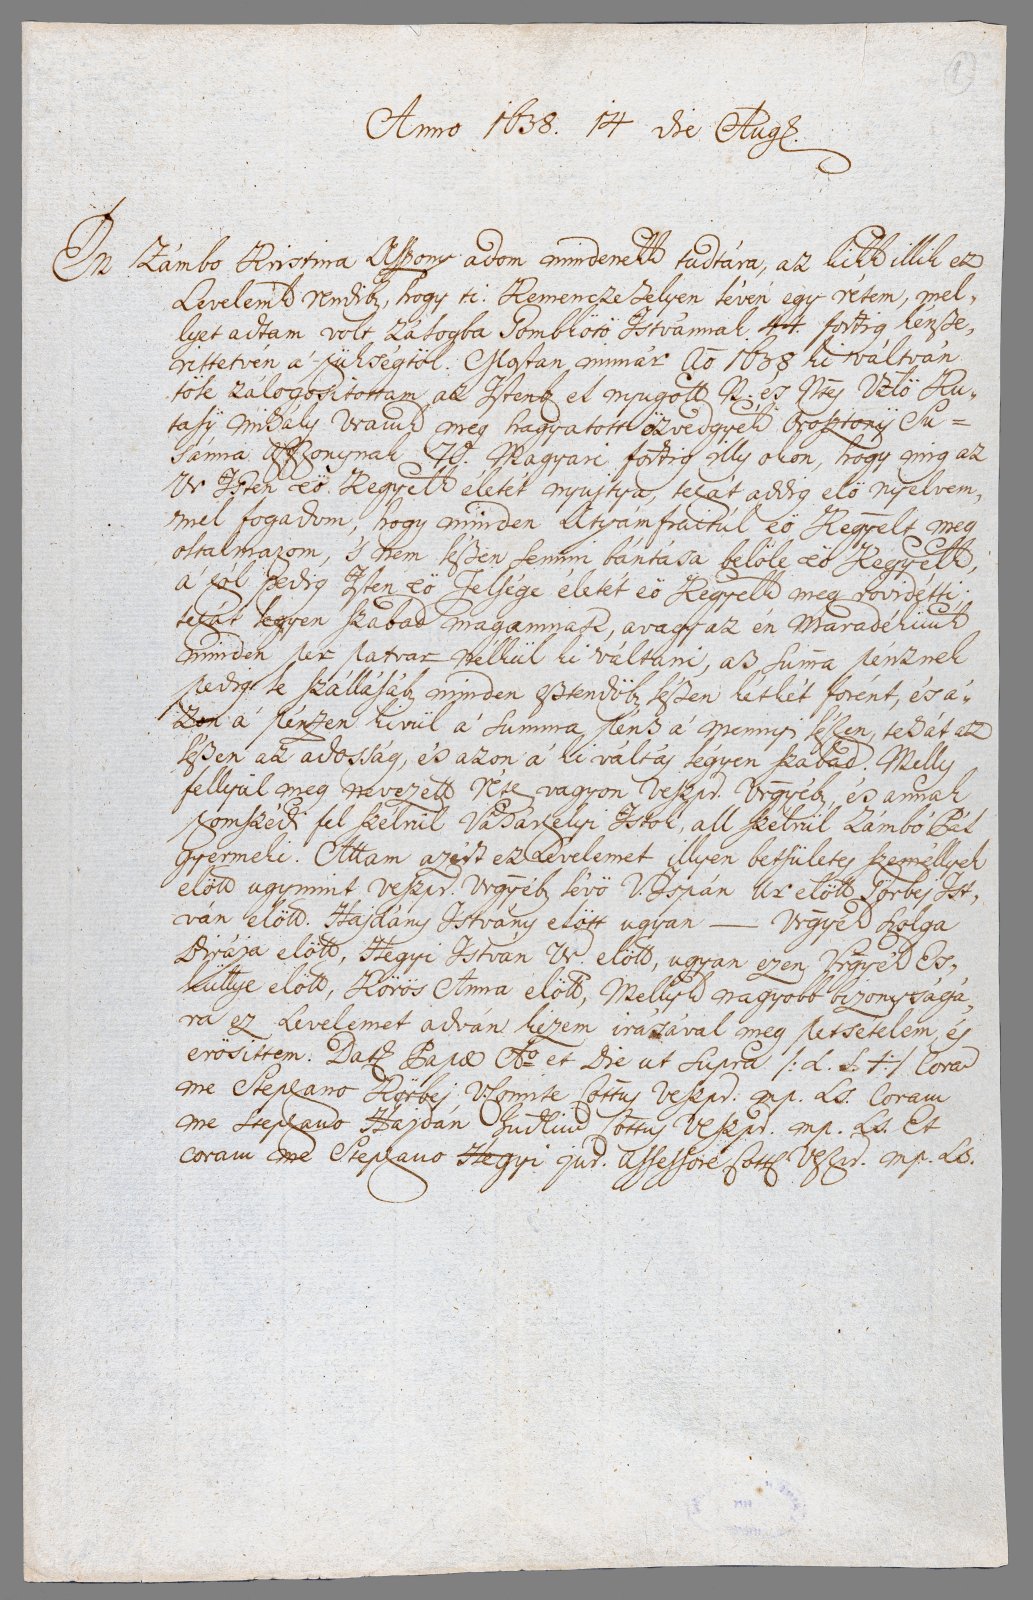 Anno 1638. 14 die Aug.
Én Zámbo Kristina Aszony adom mindeneknek tudtára, az kiknek illik ez
Levelemnek rendib, hogy ti. Kemencze helyen lévén egy rétem, mel-
lyet adtam volt zálogba Gombkötö Istvánnak 44. fortig kénsze-
rittetvén a' szükségtöl. Mostan immár Ao 1638 ki váltván
töle zálogositottam az Istenb el nyugott N. és Ntes Vzlö Ku-
tasy Mihály Uramnak meg hagyatott özvedgyének Orosztony Su=
sánna Aszonynak 70. Magyari fortig illy okon, hogy mig az
Ur Isten eö Kegyelk életét nyujtya, tehát addig elö nyelvem-
mel fogadom, hogy minden Atyámfiaitúl eö Kegyelt meg
oltalmazom, 's nem lészen semmi bántása belöle eö Kegyelk,
a hól pedig Isten eö Felsége életét eö Kegyelk meg rövidétti
tehát légyen szabad magamnak, avagy az én Maradékimnak
minden per patvar nélkül ki váltani, az suma pénznek
pedig le szállásáb minden esztendöb lészen két két forént, és á-
zon á pénzen kivül á summa pénz á mennyi lészen, tehát az
lészen az adosság, és azon á ki váltás légyen szabad. Melly
fellyül meg nevezett réte vagyon Veszpr. Vrgyéb, és annak
szomszédi fel szélrül Vásárhelyi Istók, all szélrül Zámbó Pál
gyermeki. Attam azért ez Levelemet illyen betsületes személlyek
elött ugymint Veszpr. Vrgyéb lévö V. Ispán Ur elött Körbej Ist-
ván elött. Hajdány Istvány elött ugyan — Vrgyék szolga
Birája elött, Hegyi István Ur elött, ugyan ezen Vrgyék Es-
küttye elött, Körös Anna elött, Mellynek nagyobb bizonyságá-
ra ez Levelemet adván kezem irásával meg petsetelem és
erösittem. Dat Papæ Ao et die ut supra /: L. S. +:/ Coram
me Stephano Körbej V.Comite Cottus Veszpr. mp. LS. Coram
me Stephano Hajdán Judlium Cottus Veszpr. mp. LS. Et
coram me Stephano Hegyi jur. Assessore Cott Veszpr. mp. LS.